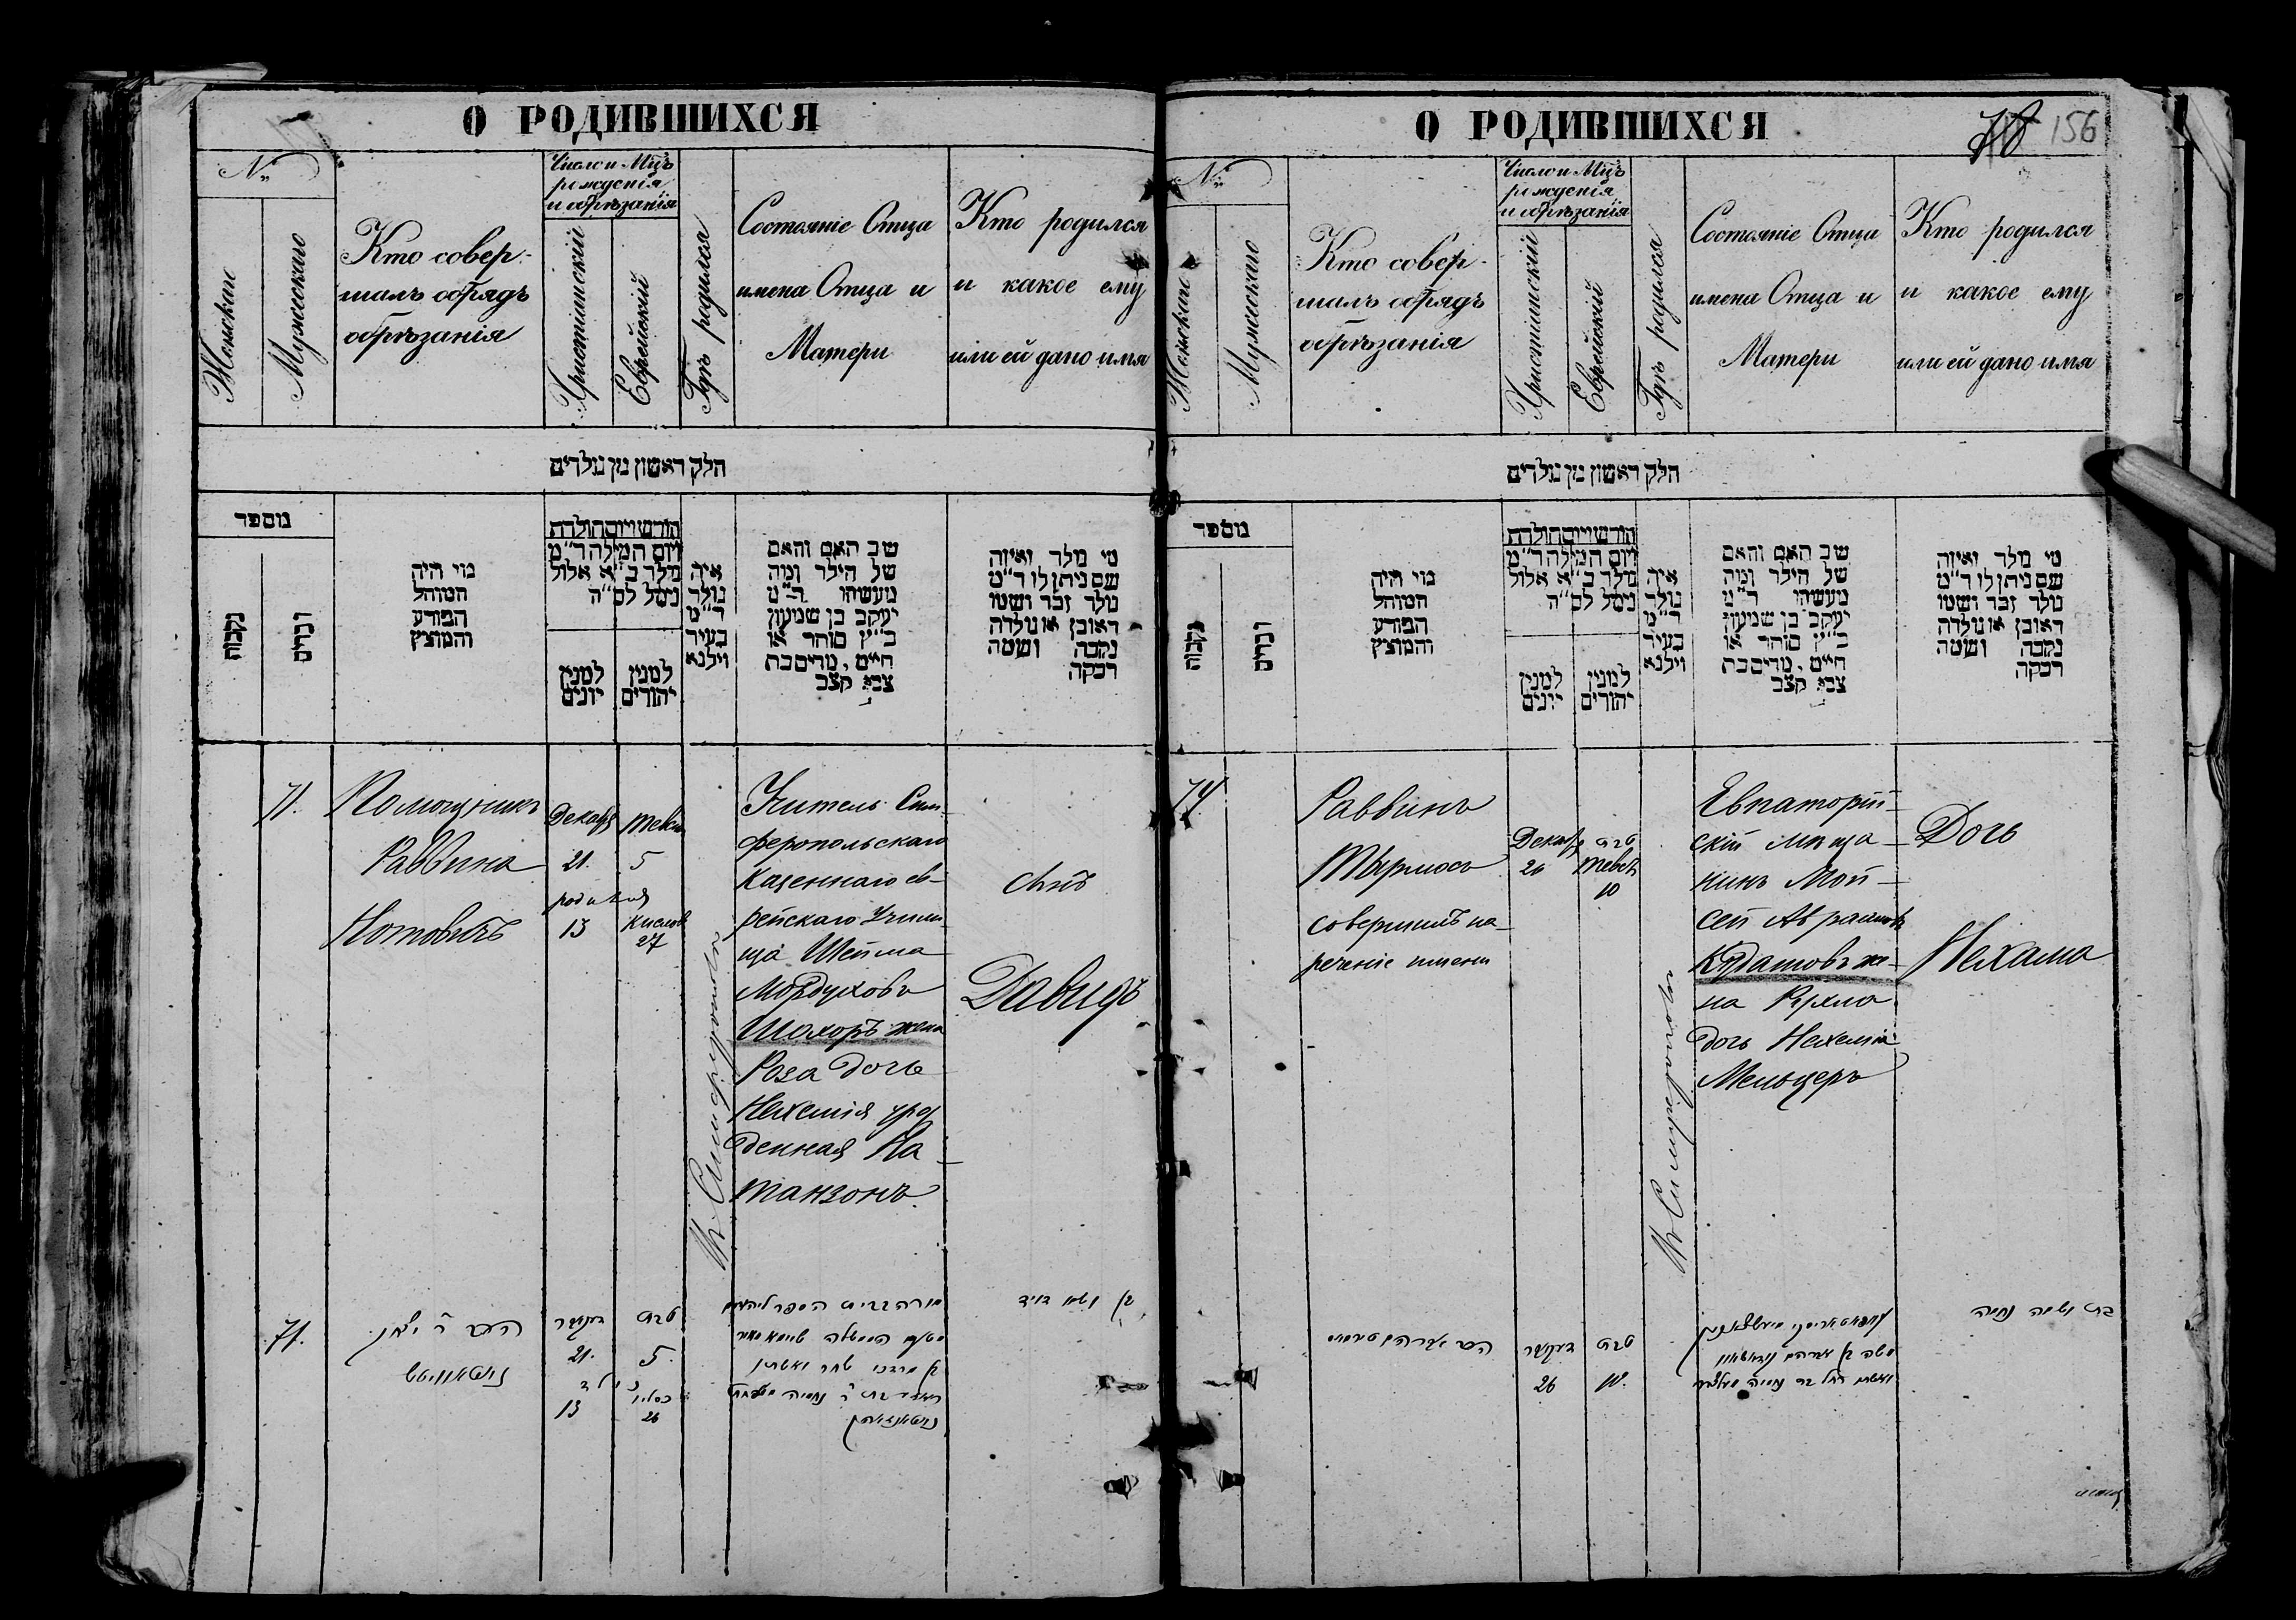 О РОДИВШИХСЯ
№
Женскаго
Мужескаго
Кто совер-
шалъ обрядъ
обрѣзанія
Число и Мцъ
рожденія
и обрѣзанія
Христіанскій
Еврейскій
Гдѣ родился
Состояніе Отца
имена Отца и
Матери
Кто родился
и какое ему
или ей дано имя
חלק ראשון מן נולדים
מספר
נקבות
זכרים
מי היה
המוהל
הפורע
והמוצץ
חודש ויום הולדת
ויום המילה ר״מ
נולד ב״א אלול
נימל לס״ה
למנין
יונים
למנין
יהודים
איה
נולד
ר״מ
בעיר
וילנא
שב האם והאם
של הילד ומה
מעשיהו ר״מ
יעקב בן שמעון
כ״ץ סוחר או
חייט, מרים בת
צבי קצב
מי נולד ואיזה
שם ניתן לו ר״מ
נולד זכר ושמו
ראובן או נולדה
נקבה ושמה
רבקה
71.
Помощникъ
Раввина
Нотовичъ
Декабря
21.
родился
13
Тевета
5
Кислев
27
Въ Симферополѣ
Учитель Сим-
феропольскаго
Казеннаго ев-
рейскаго Учили-
ща Шейма
Мордуховъ
Шохоръ жена
Роза дочь
Нехемія урож
денная На-
танзонъ
Сынъ
Давидъ
71.
דעקאבר
21.
13
טבת
5.
כסליו
26
בן ושמו דויד
О РОДИВШИХСЯ
156
№
Женскаго
Мужескаго
Кто совер-
шалъ обрядъ
обрѣзанія
Число и Мцъ
рожденія
и обрѣзанія
Христіанскій
Еврейскій
Гдѣ родился
Состояніе Отца
имена Отца и
Матери
Кто родился
и какое ему
или ей дано имя
חלק ראשון מן נולדים
מספר
נקבות
זכרים
מי היה
המוהל
הפורע
והמוצץ
חודש ויום הולדת
ויום המילה ר״מ
נולד ב״א אלול
נימל לס״ה
למנין
יונים
למנין
יהודים
איה
נולד
ר״מ
בעיר
וילנא
שב האם והאם
של הילד ומה
מעשיהו ר״מ
יעקב בן שמעון
כ״ץ סוחר או
חייט, מרים בת
צבי קצב
מי נולד ואיזה
שם ניתן לו ר״מ
נולד זכר ושמו
ראובן או נולדה
נקבה ושמה
רבקה
74
Раввинъ
Тырмосъ
совершилъ на-
реченіе имени
Декабр
26
טבת
Теветъ
10
Въ Симферополѣ
Евпаторій-
скій мѣща-
нинъ Мой-
сей Аврамовъ
жe-
на Рухма
дочь Нехемія
Мельцеръ
Дочь
Нехама
דעקאבר
26
טבת
10.
משה בן אברהם
ואשתו רחל בת נחמיה מעלצער
בת ושמה נחמה